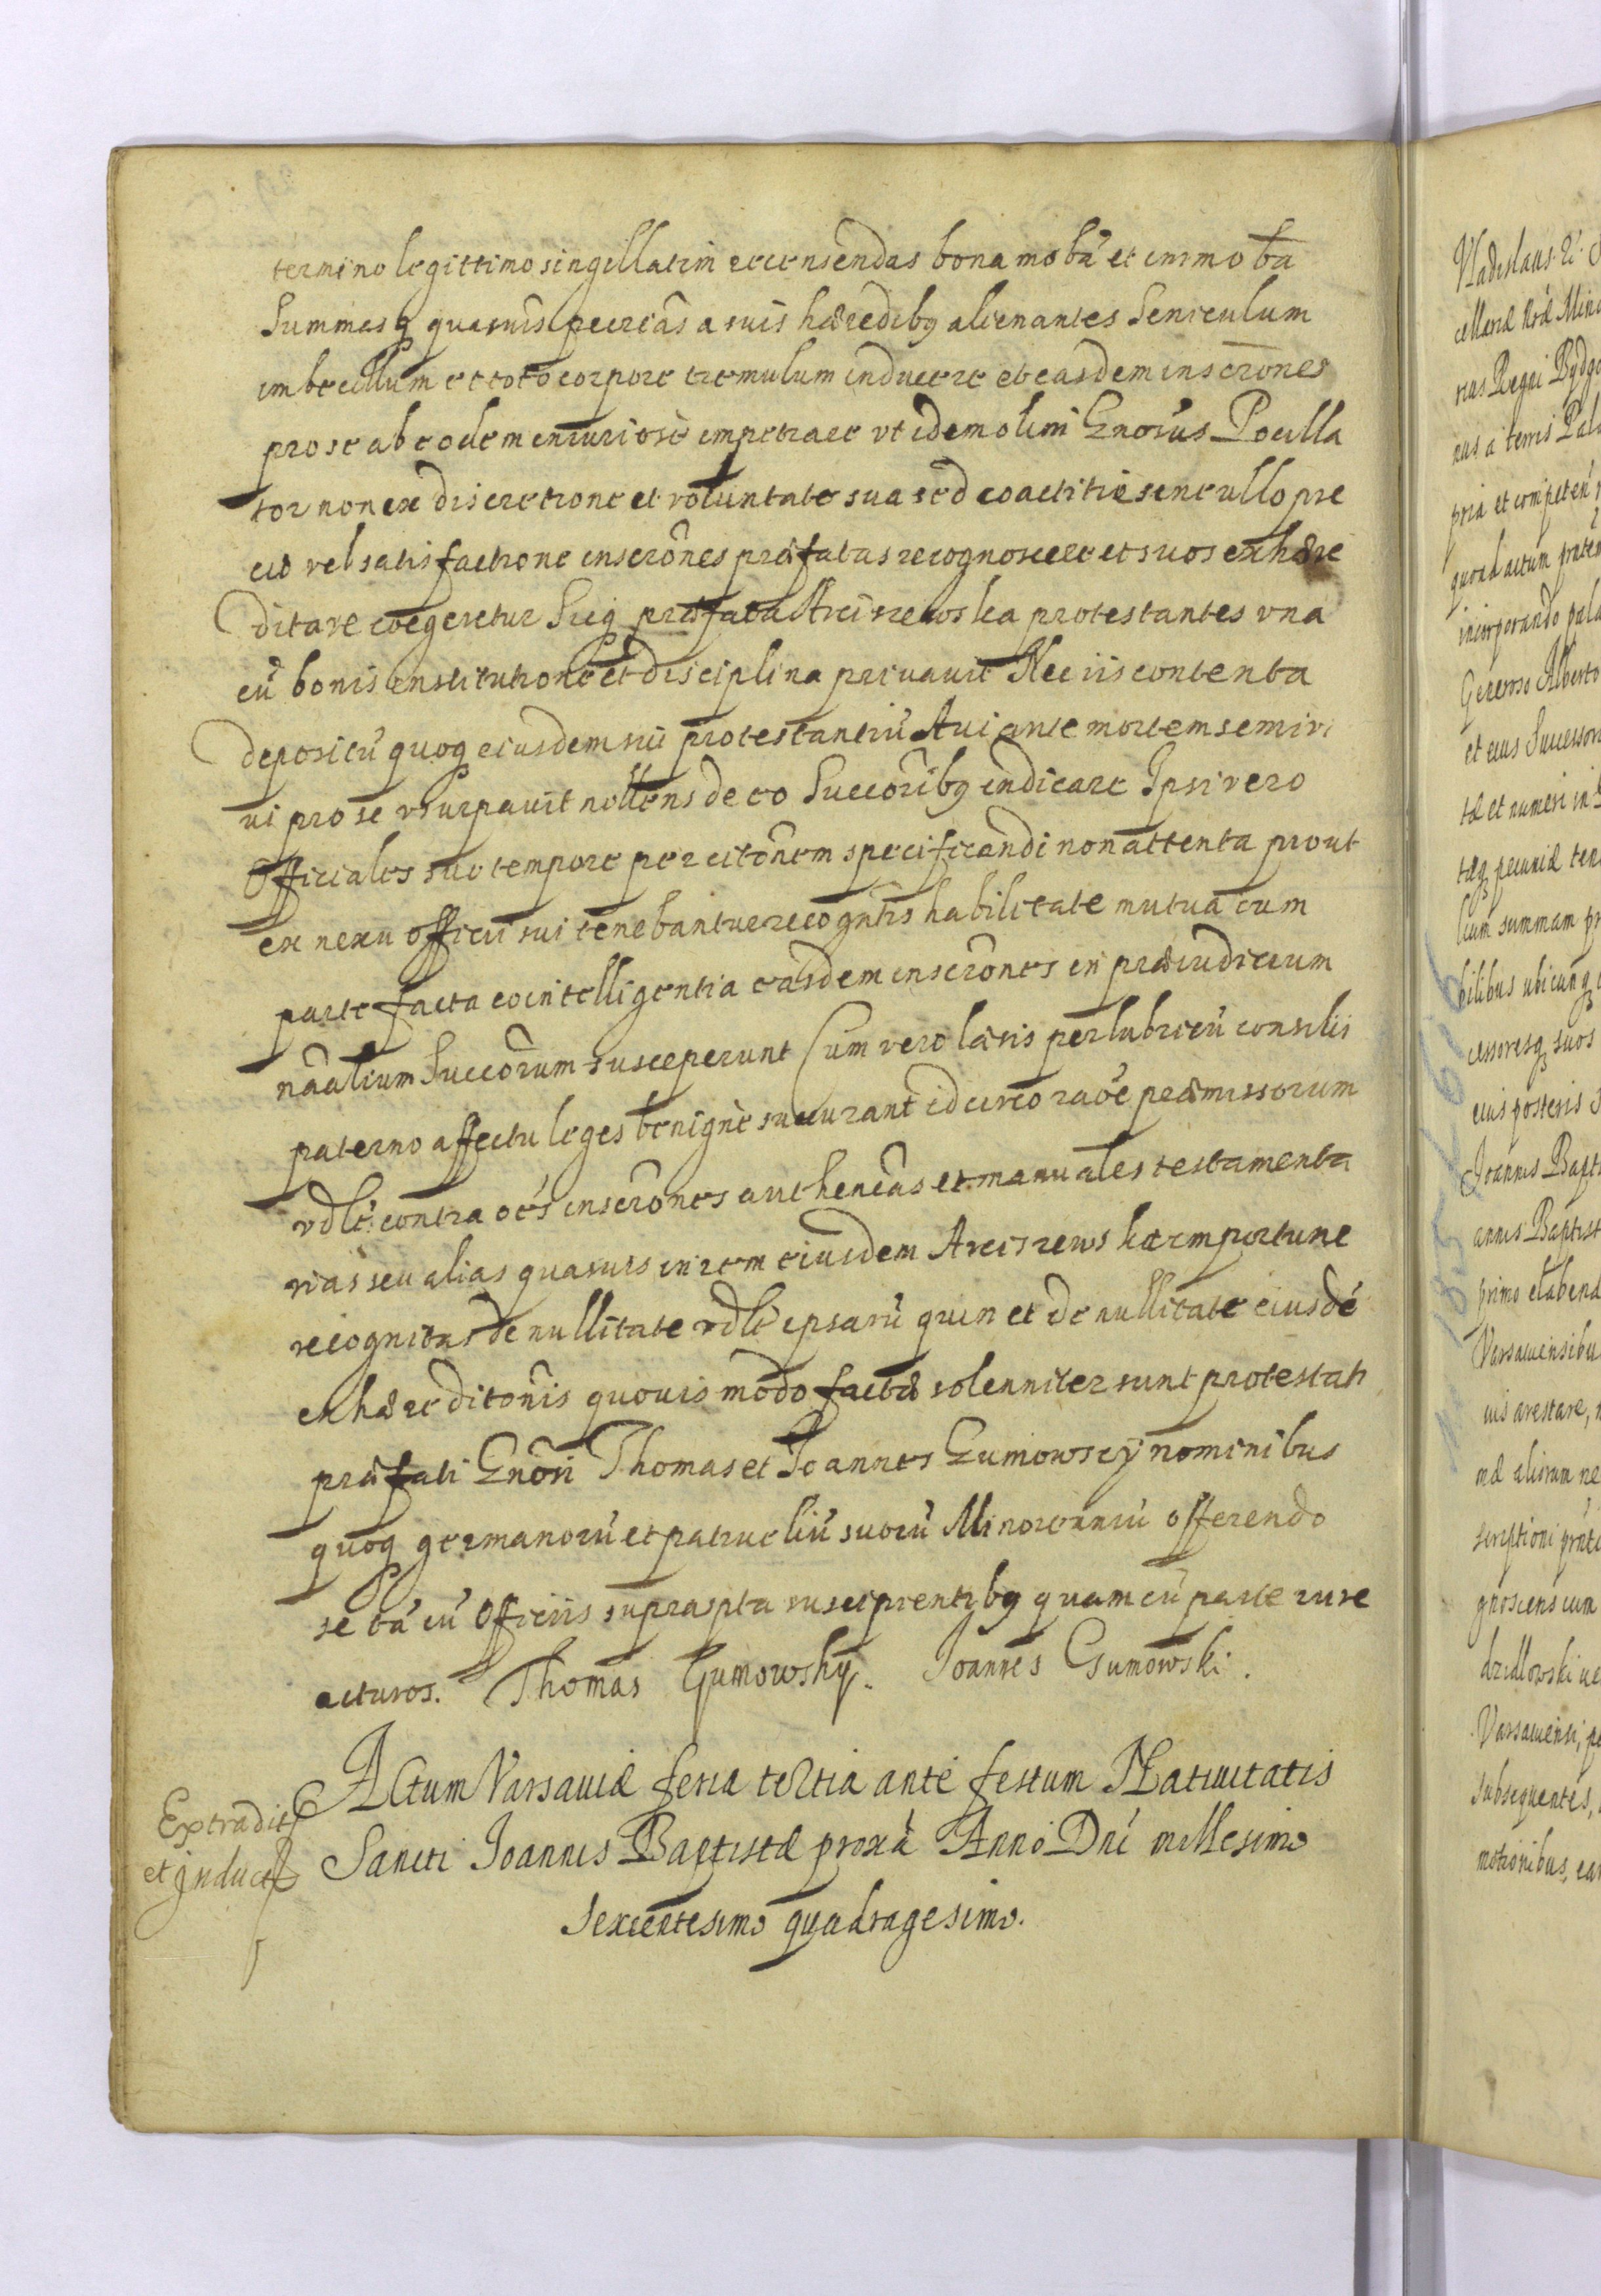 termino legittimo singillatim recensendas bona mobā et immobā
Summasq quasuis pecrias a suis hæredibq alienantes Seniculum
imbecillum et toto corpore tremulum inducere et easdem inscrōnes
pro se ab eodem iniuriosè impetrare vt idem olim Gnosus Pocilla
tor non ex discretione et voluntate sua sed coactitie sine ullo pre
cio vel satisfactione inscrōnes præfatas recognoscere et suos exhære
ditare cogeretur Sicq præfata Arciszewska protestantes vna
cū bonis institutione et disciplina privauit Nec iis contenta
depositū quoq eiusdem sui protestantiū Aui ante mortem semivi
ui pro se vsurpauit nollens de eo Succoribq indicare Ipsi vero
Officiales suo tempore per citōnem specificandi non attenta prout
ex nexu officii sui tenebantur recogntis habilitate mutua cum
parte facta cointelligentia easdem inscrōnes in præiudicium
nāalium Succorum susceperunt Cum vero læsis per lubricū consilii
paterno affectu leges benignè succurant idcirco raōe præmissorum
vdlt contra oēs inscrōnes authencas et manuales testamenta
rias seu alias quasuis in rem eiusdem Arciszewska importune
recognitas de nullitate vdlt ipsarū quin et de nullitate eiusdē
exhæreditōnis quouis modo factæ solenniter sunt protestati
præfati Gnōsi Thomas et Joannes Gumowscÿ nominibus
quoq germanorū et patrueliū suorū Minorenniū offerendo
se tā cū Officiis suprascpta suscipientibq quam cū parte iure
acturos. Thomas Gumowskÿ. Joannes Gumowski.
Actum Varsauiæ feria tertia ante festum Natiuitatis
Extradit
et induct
Sancti Joannis Baptistæ proxā Anno Dni millesimo
Sexcentesimo quadragesimo.
Vladislaus
cellariæ Rdæ
rius Regni
nus à terris
pria et competen
quoad actum
incorporando
Generoso Alberto
et eius Successor
tæ et numeri in
tæq pecuniæ
licum summam
bilibus ubicunq
cessoresq suos
eius posteris
Joannis Bapt
annis Baptist
primo
Varsauiensibu
uis arestare,
mæ
scriptioni
gnoscens cum
Varsauiensi,
Subsequentes,
motionibus,